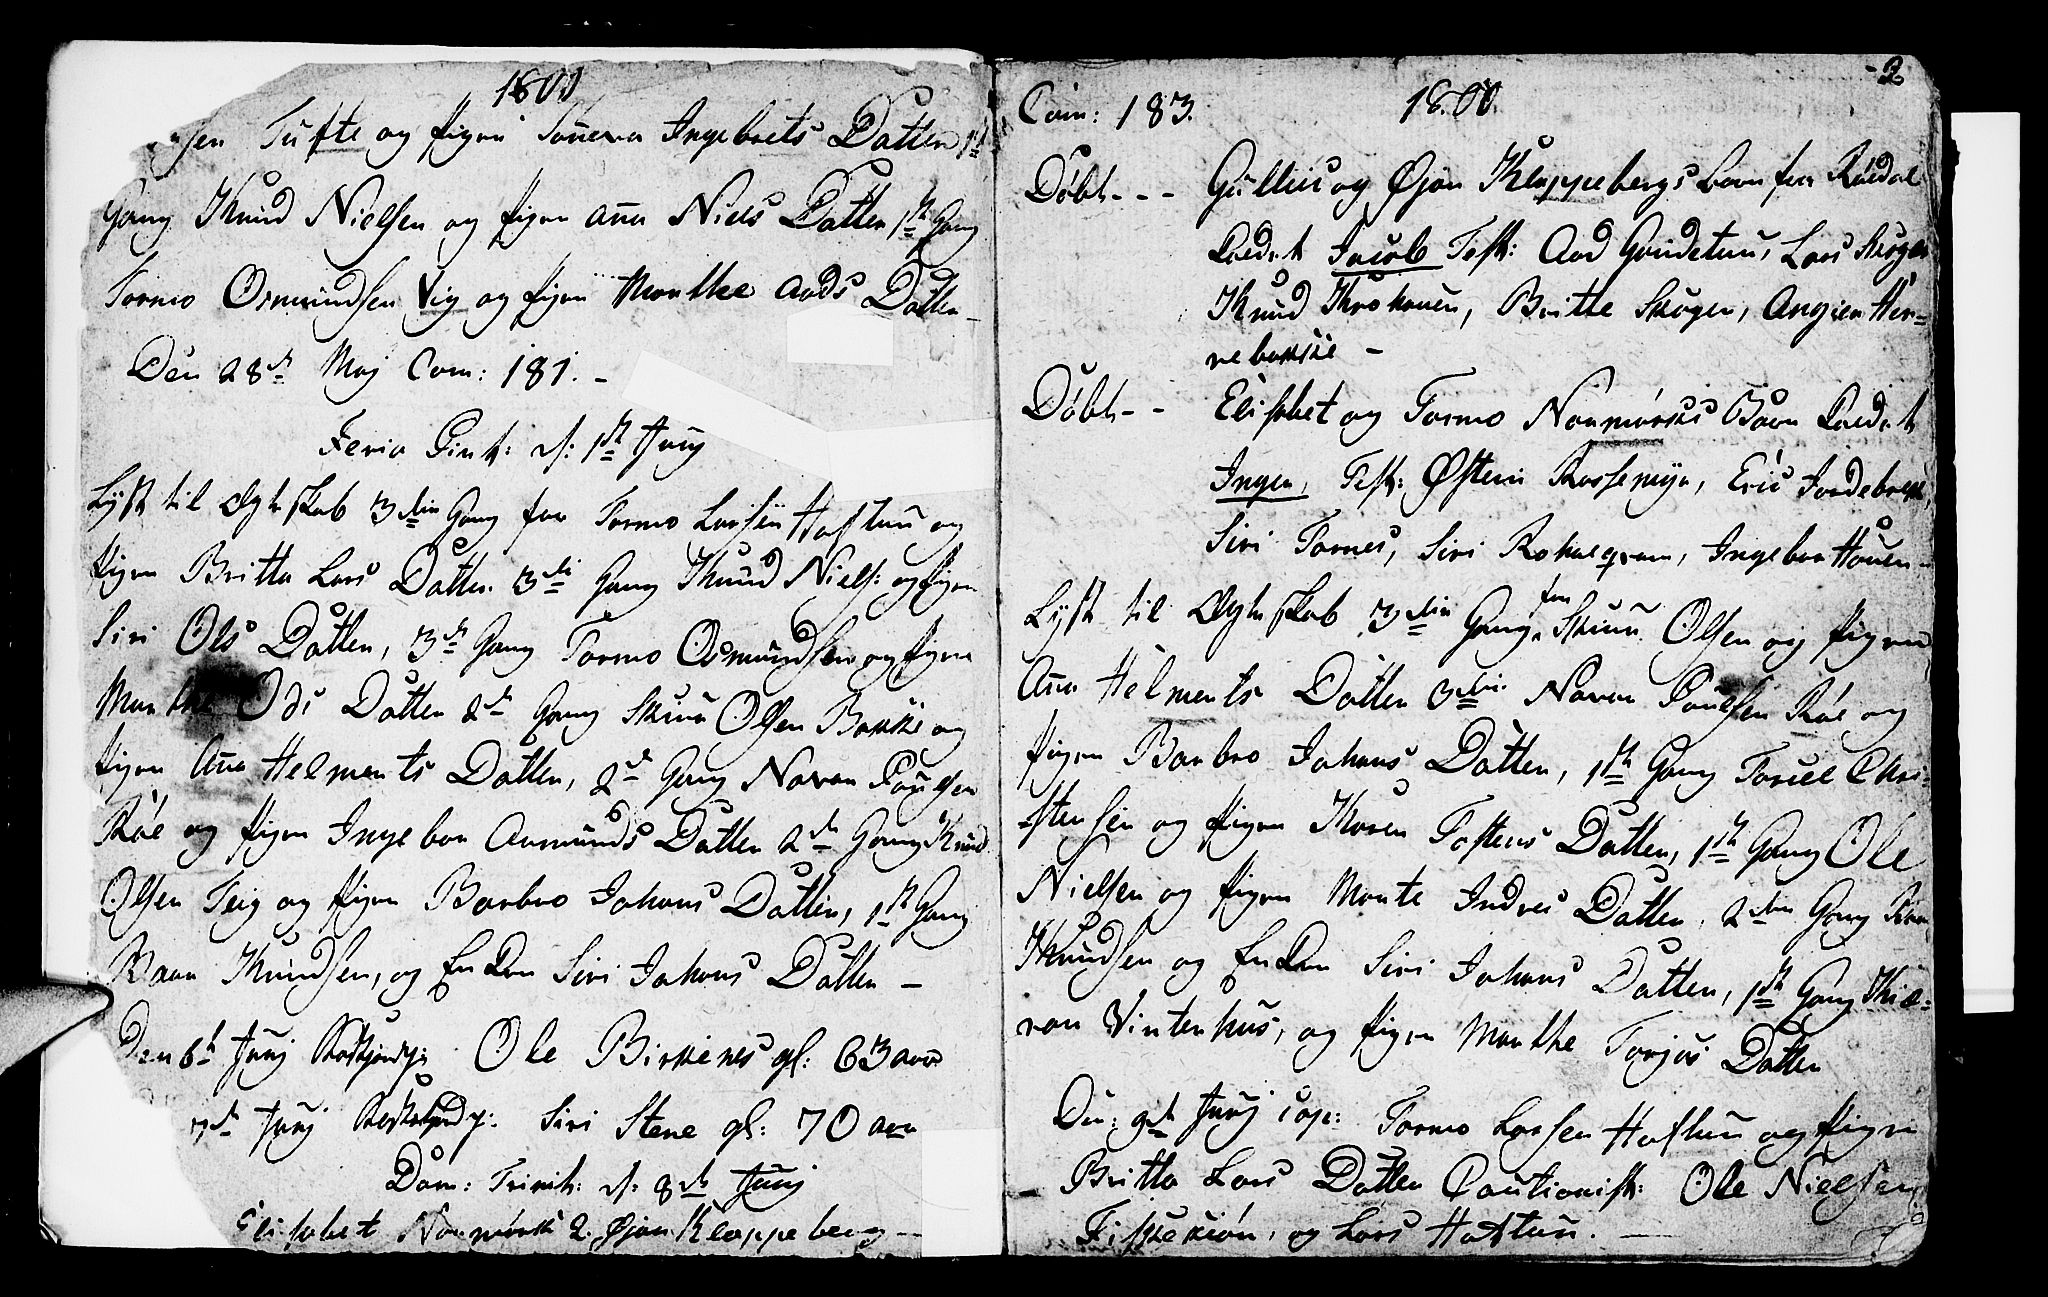 1800
Tufte og Pigen Sønneva Ingebrets Datter 1st
Gang Knud Nielsen og Pigen Ana Niels Datter 1st Gang
Tormo Osmundsen Vig og Pigen Marthe Aads Datter
Den 28de Maj Com: 181. -
Feria Pent: d: 1st Junj
Lyst til Ægteskab 3die Gang for Tormo Larsen Haftun og
Pigen Britta Lars Datter 3die Gang Knud Niels: og Pigen
Siri Ols Datter, 3de Gang Tormo Osmundsen og Pigen
Marthe Ods Datter 2de Gang Skiuu Olsen Bakke og
Pigen Ana Helments Datter, 2de Gang Navar Poulsen
Røe og Pigen Ingebor Aamunds Datter 2de Gang Knud
Olsen Teig og Pigen Barbro Johans Datter, 1st Gang
Knudsen, og Enken Siri Johans Datter -
Den 6te Junj Ole Birkenes gl: 63 aar
7de Junj Siri Stene gl: 70 aar
Dom: Trinit: d: 8de Junj
Elisabet Normørk 2. Øjan Kleppeberg -
- 2
Com: 183. 1800.
Døbt - - - Gullic og Øjan Kleppebergs Barn fra Røldal
kaldet Jacob Test: Aad Grudetun, Lars Skogen
Knud Kroken, Britte Skogen, Angien Her-
rebakke -
Døbt - - Elisabet og Tormo Normørkes Barn kaldet
Ingen, Test: Østen Rossemyr, Eric Jordebrek,
Siri Tornes, Siri Rohaeqvam, Ingebor Houen -
Lyst til Ægteskab 3die Gang for Skiuu Olsen og Pigen
Ana Helments Datter 3die Navar Poulsen Røe og
Pigen Barbro Johans Datter, 1st Gang Toriel Chri-
stensen og Pigen Karen Tostens Datter, 1st Gang Ole
Nielsen og Pigen Marte Indres Datter, 2den Gang
Knudsen og Enken Siri Johans Datter, 1st Gang Thie-
ran Vintenhus, og Pigen Marthe Torjus Datter
Den: 9de Junj cop: Tormo Larsen Haftun og Pigen
Britta Lars Datter Cautionist: Ole Nielsen
Fiskekiøn, og Lars Haftun. -